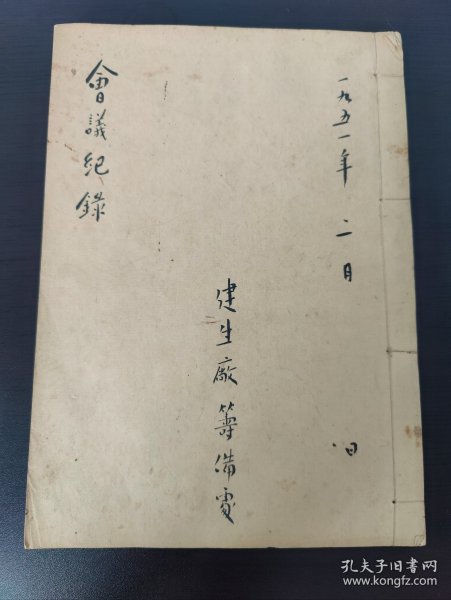 一九五一年 二月 日
建生廠籌備處
會議紀錄
孔夫子旧书网
www.kongfz.com